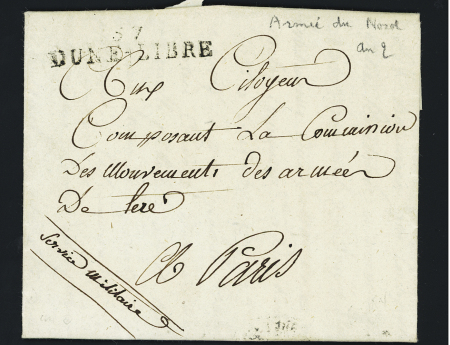 Armée du Nord
an 2
57
DUNE-LIBRE
Aux Citoyens
Composant La Commission
Des mouvements des armées
De terre
A Paris
Service Militaire